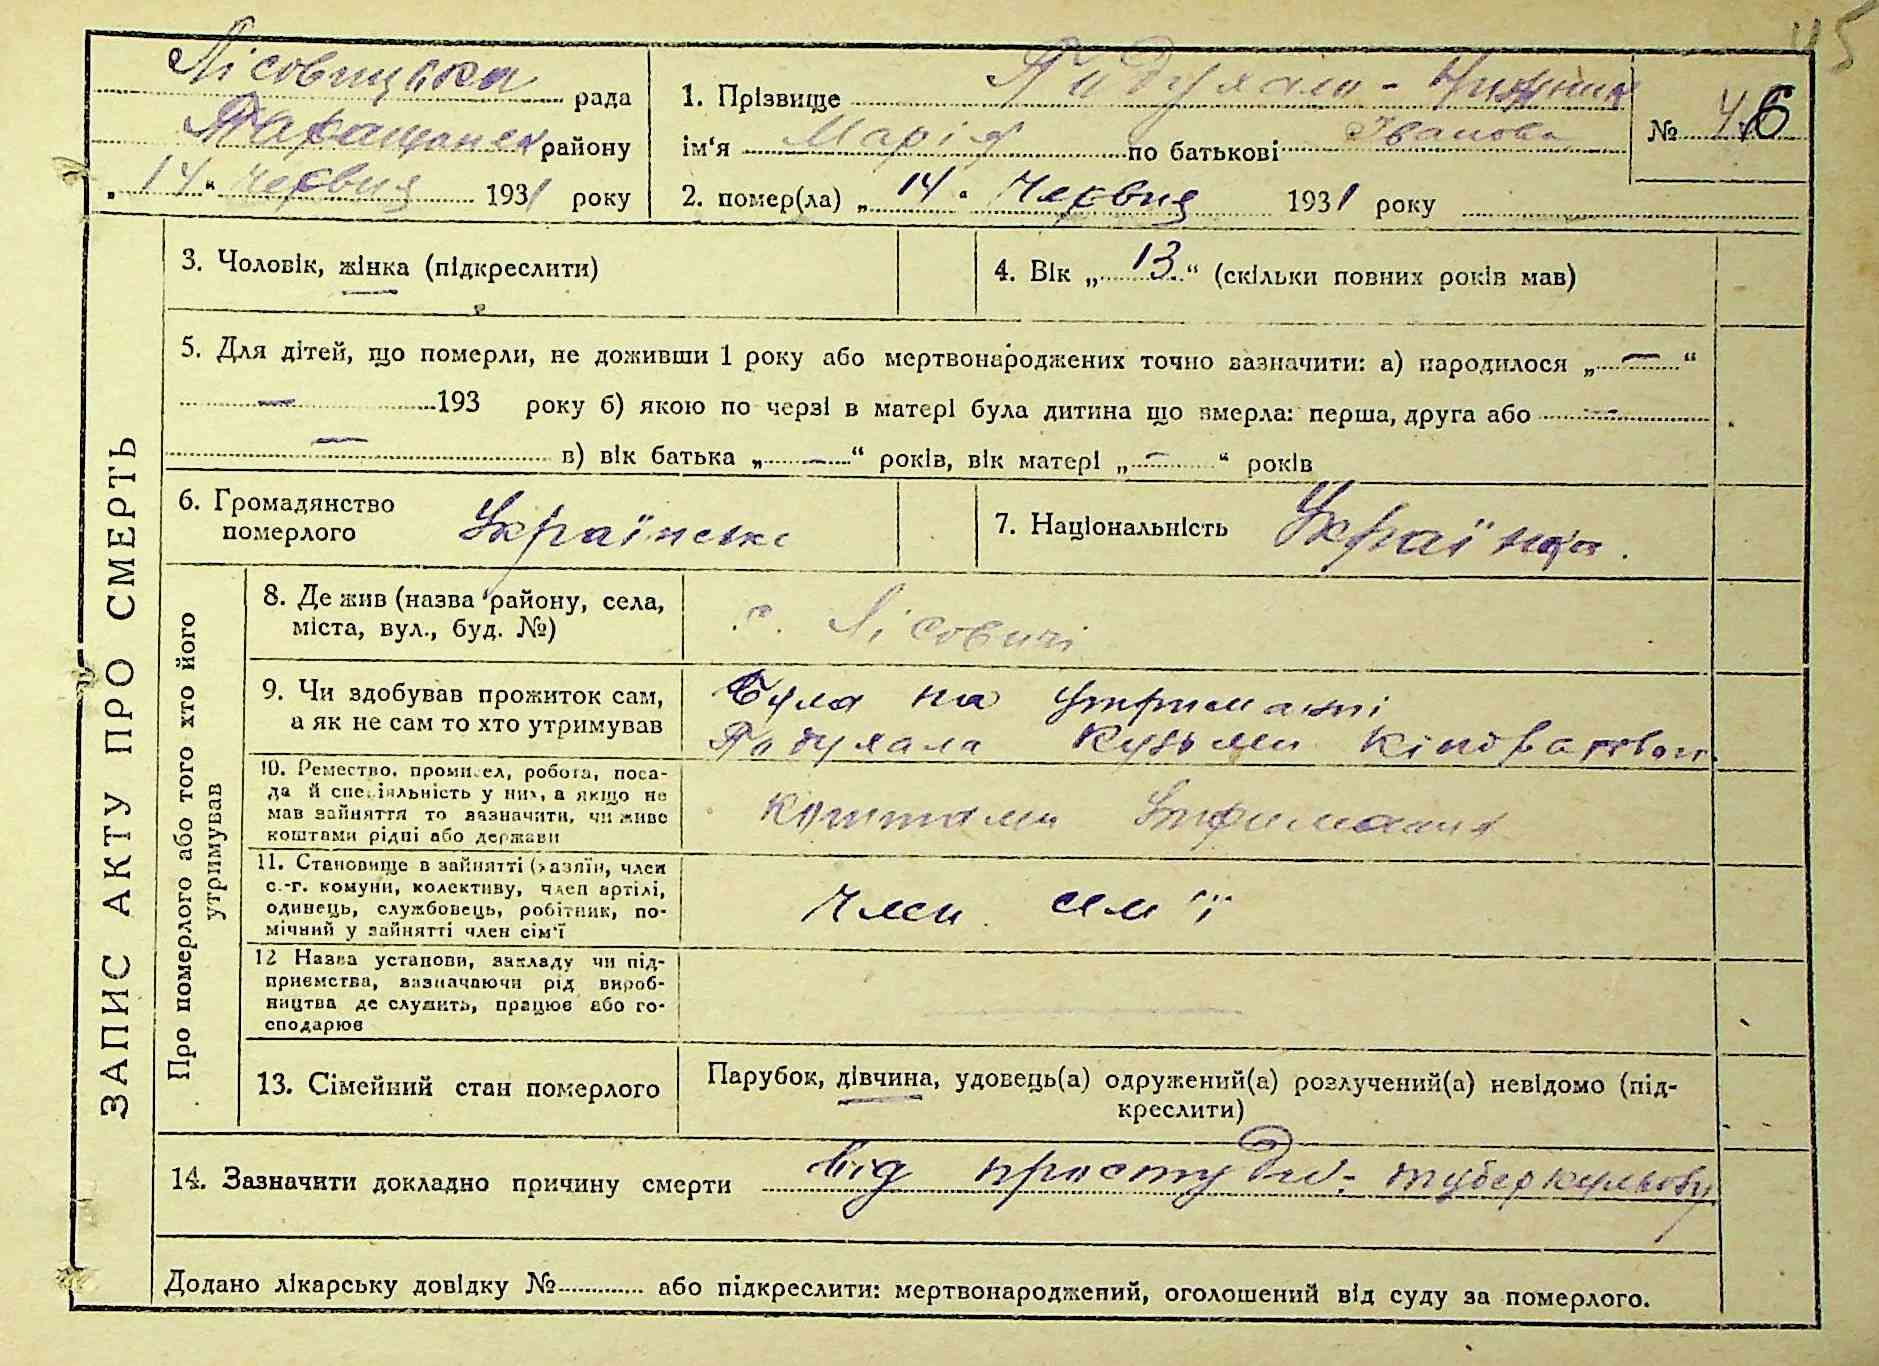 45
Лісовицька рада
Таращанськ району
„ 14 “ Червня 1931 року
1. Прізвище Падухала-
ім‘я Марія по батькові Іванова
2. помер(ла) „ 14 “ Червня 1931 року
№ 46
ЗАПИС АКТУ ПРО СМЕРТЬ
3. Чоловік, жінка (підкреслити)
4. Вік „ 13 “ (скільки повних років мав)
5. Для дітей, що померли, не доживши 1 року або мертвонароджених точно зазначити: а) народилося „ — “
— 193 року б) якою по черзі в матері була дитина що вмерла: перша, друга або —
— в) вік батька „ — “ років, вік матері „ — “ років
6. Громадянство
померлого Українське
7. Національність Українка.
Про померлого або того хто його
утримував
8. Де жив (назва району, села,
міста, вул., буд. №)
с. Лісовичі
9. Чи здобував прожиток сам,
а як не сам то хто утримував
Була на утриманні
Падухала Кузьми
10. Ремество, промисел, робота, поса-
да й спеціяльність у них, а якщо не
мав зайняття то зазначити, чи живе
коштами рідні або держави
коштами Утримания
11. Становище в зайнятті (хазяїн, член
с.-г. комуни, колективу, член артілі,
одинець, службовець, робітник, по-
мічний у зайнятті член сім‘ї
Член сем'ї
12 Назва установи, закладу чи під-
приємства, зазначаючи рід вироб-
ництва де служить, працює або го-
сподарює
—
13. Сімейний стан померлого
Парубок, дівчина, удовець(а) одружений(а) розлучений(а) невідомо (під-
креслити)
14. Зазначити докладно причину смерти від простуди - туберкульозу
Додано лікарську довідку № або підкреслити: мертвонароджений, оголошений від суду за померлого.